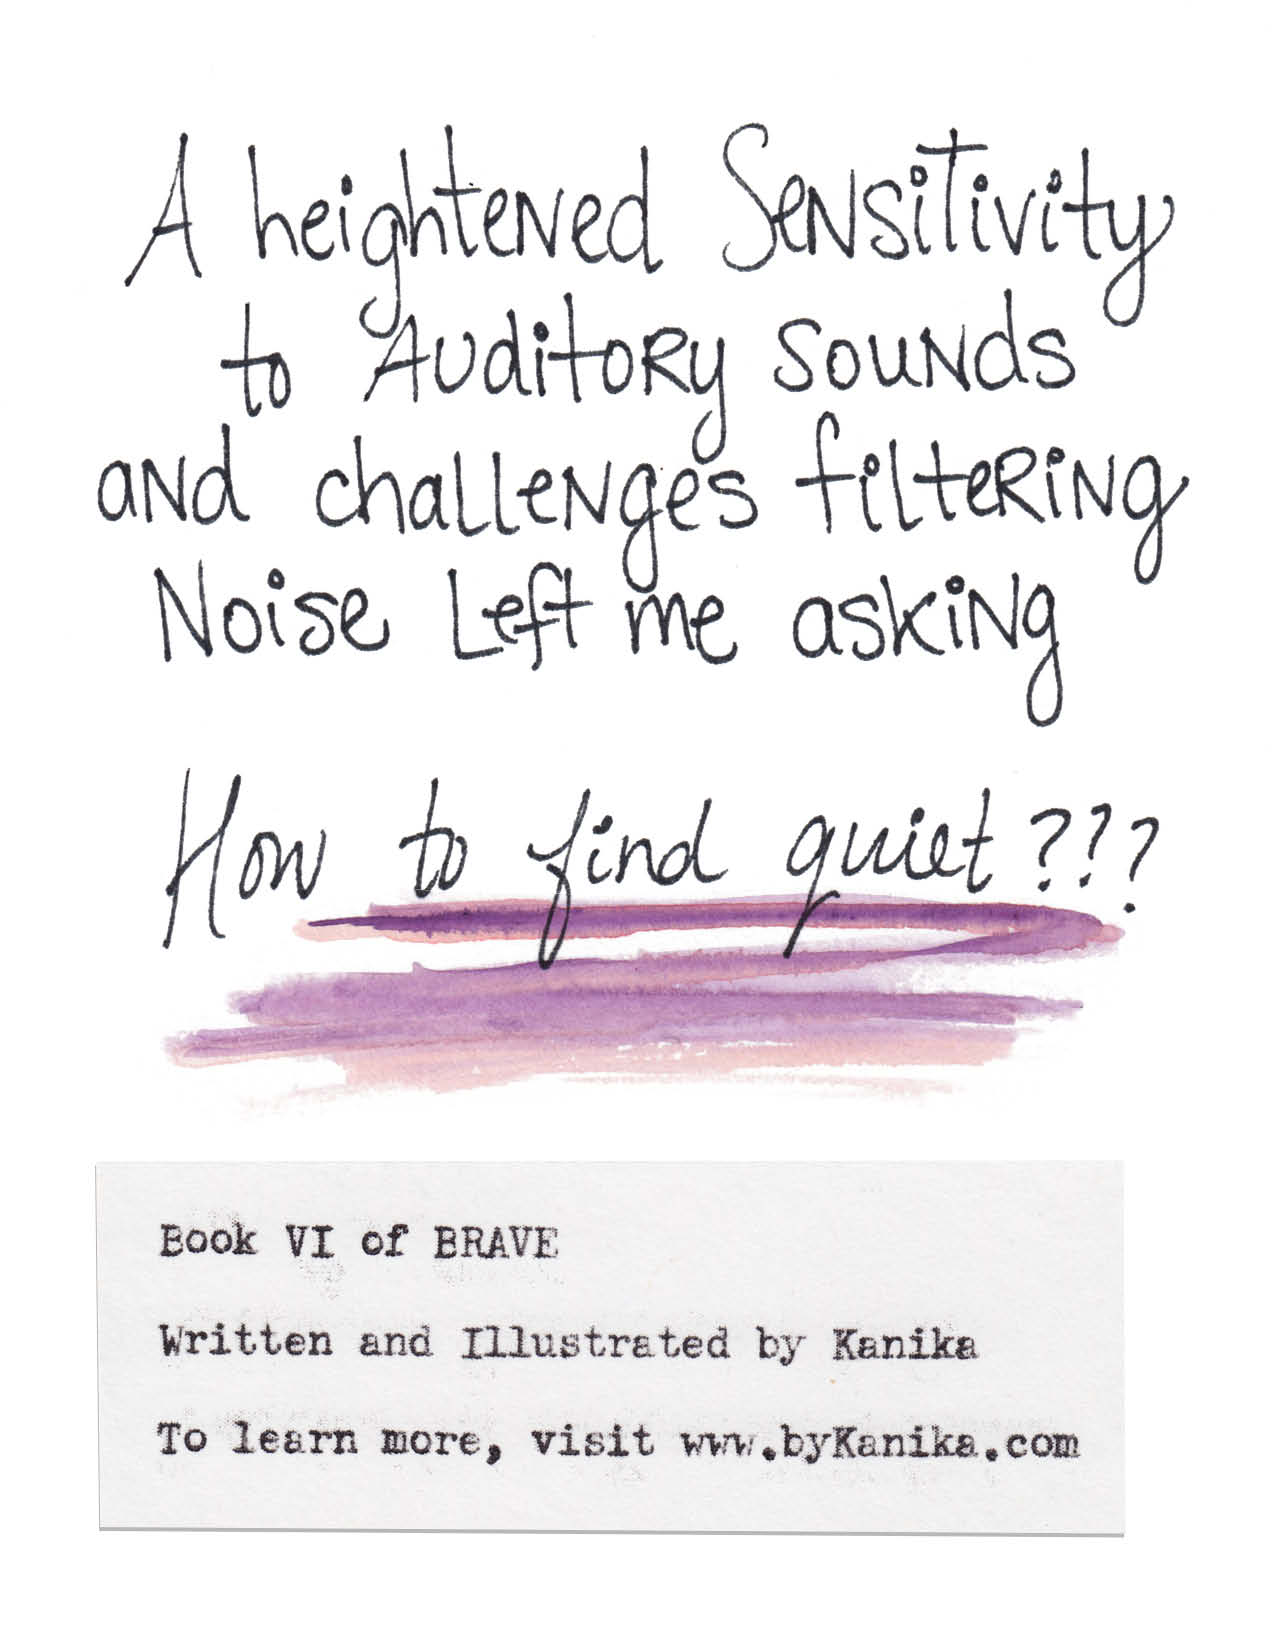 A heightened Sensitivity
to Auditory sounds
and challenges filtering
Noise Left me asking
How to find quiet???
Book VI of BRAVE
Written and Illustrated by Kanika
To learn more, visit www.byKanika.com